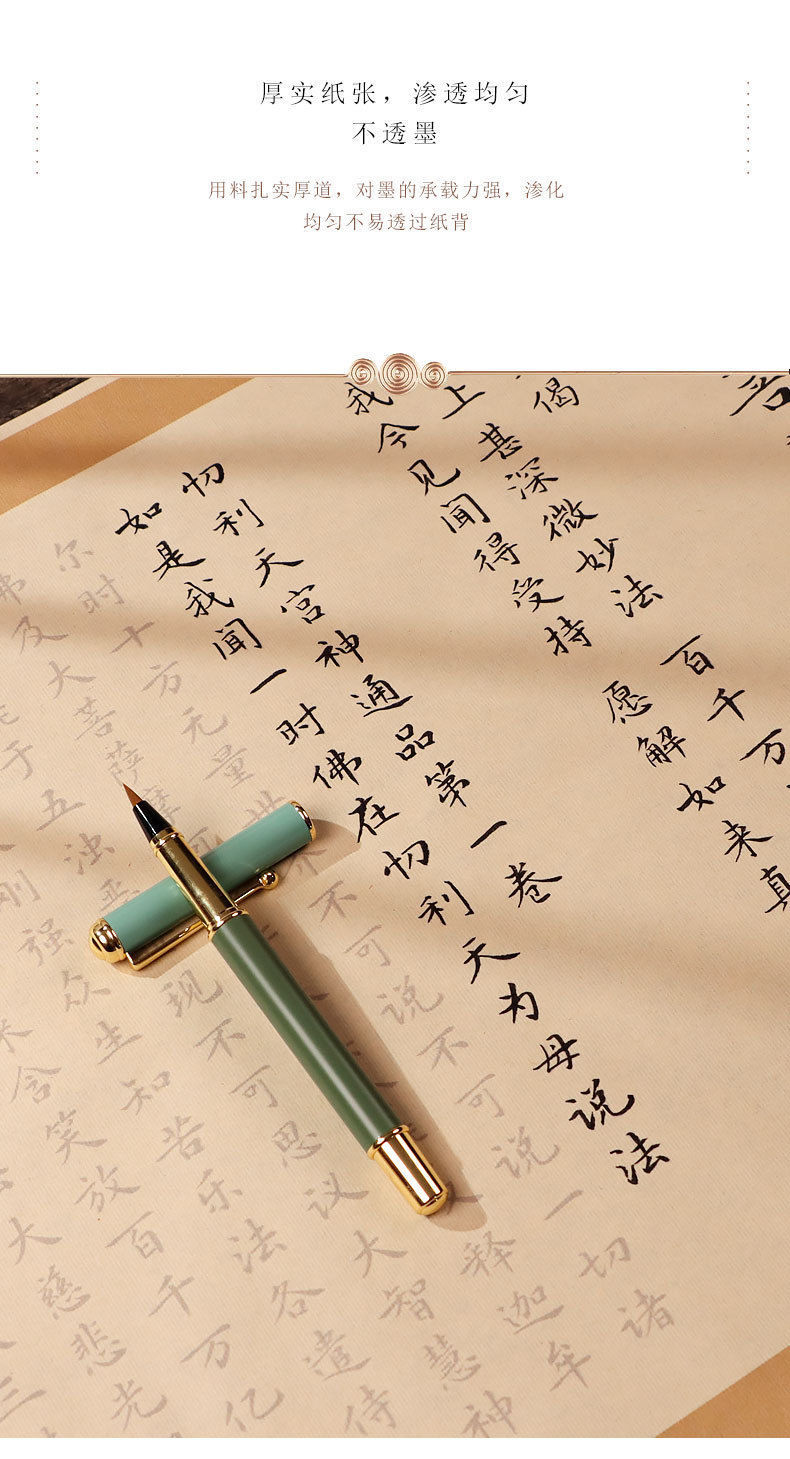 厚实纸张，渗透均匀
不透墨
用料扎实厚道，对墨的承载力强，渗化
均匀不易透过纸背
偈
上甚深微妙法 百千万
我今见闻得受持 愿解如来真
忉利天宫神通品第一卷
如是我闻一时佛在忉利天为母说法
尔时十方无量世界不可说不可说一切诸
佛及大菩萨摩 释迦牟
于五浊恶 现不可思议大智慧神
刚强众生知苦乐法各遣侍
来含笑放百千万亿
大慈悲光
三